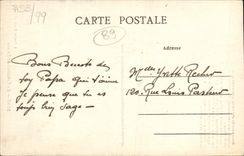 ASE/99
CARTE POSTALE
89
Adresse
Bons Baisers de
ton Papa qui t'aime
Je pense que tu es
toujs bien sage -
Melle Yvette
120. Rue Louis Pasteur